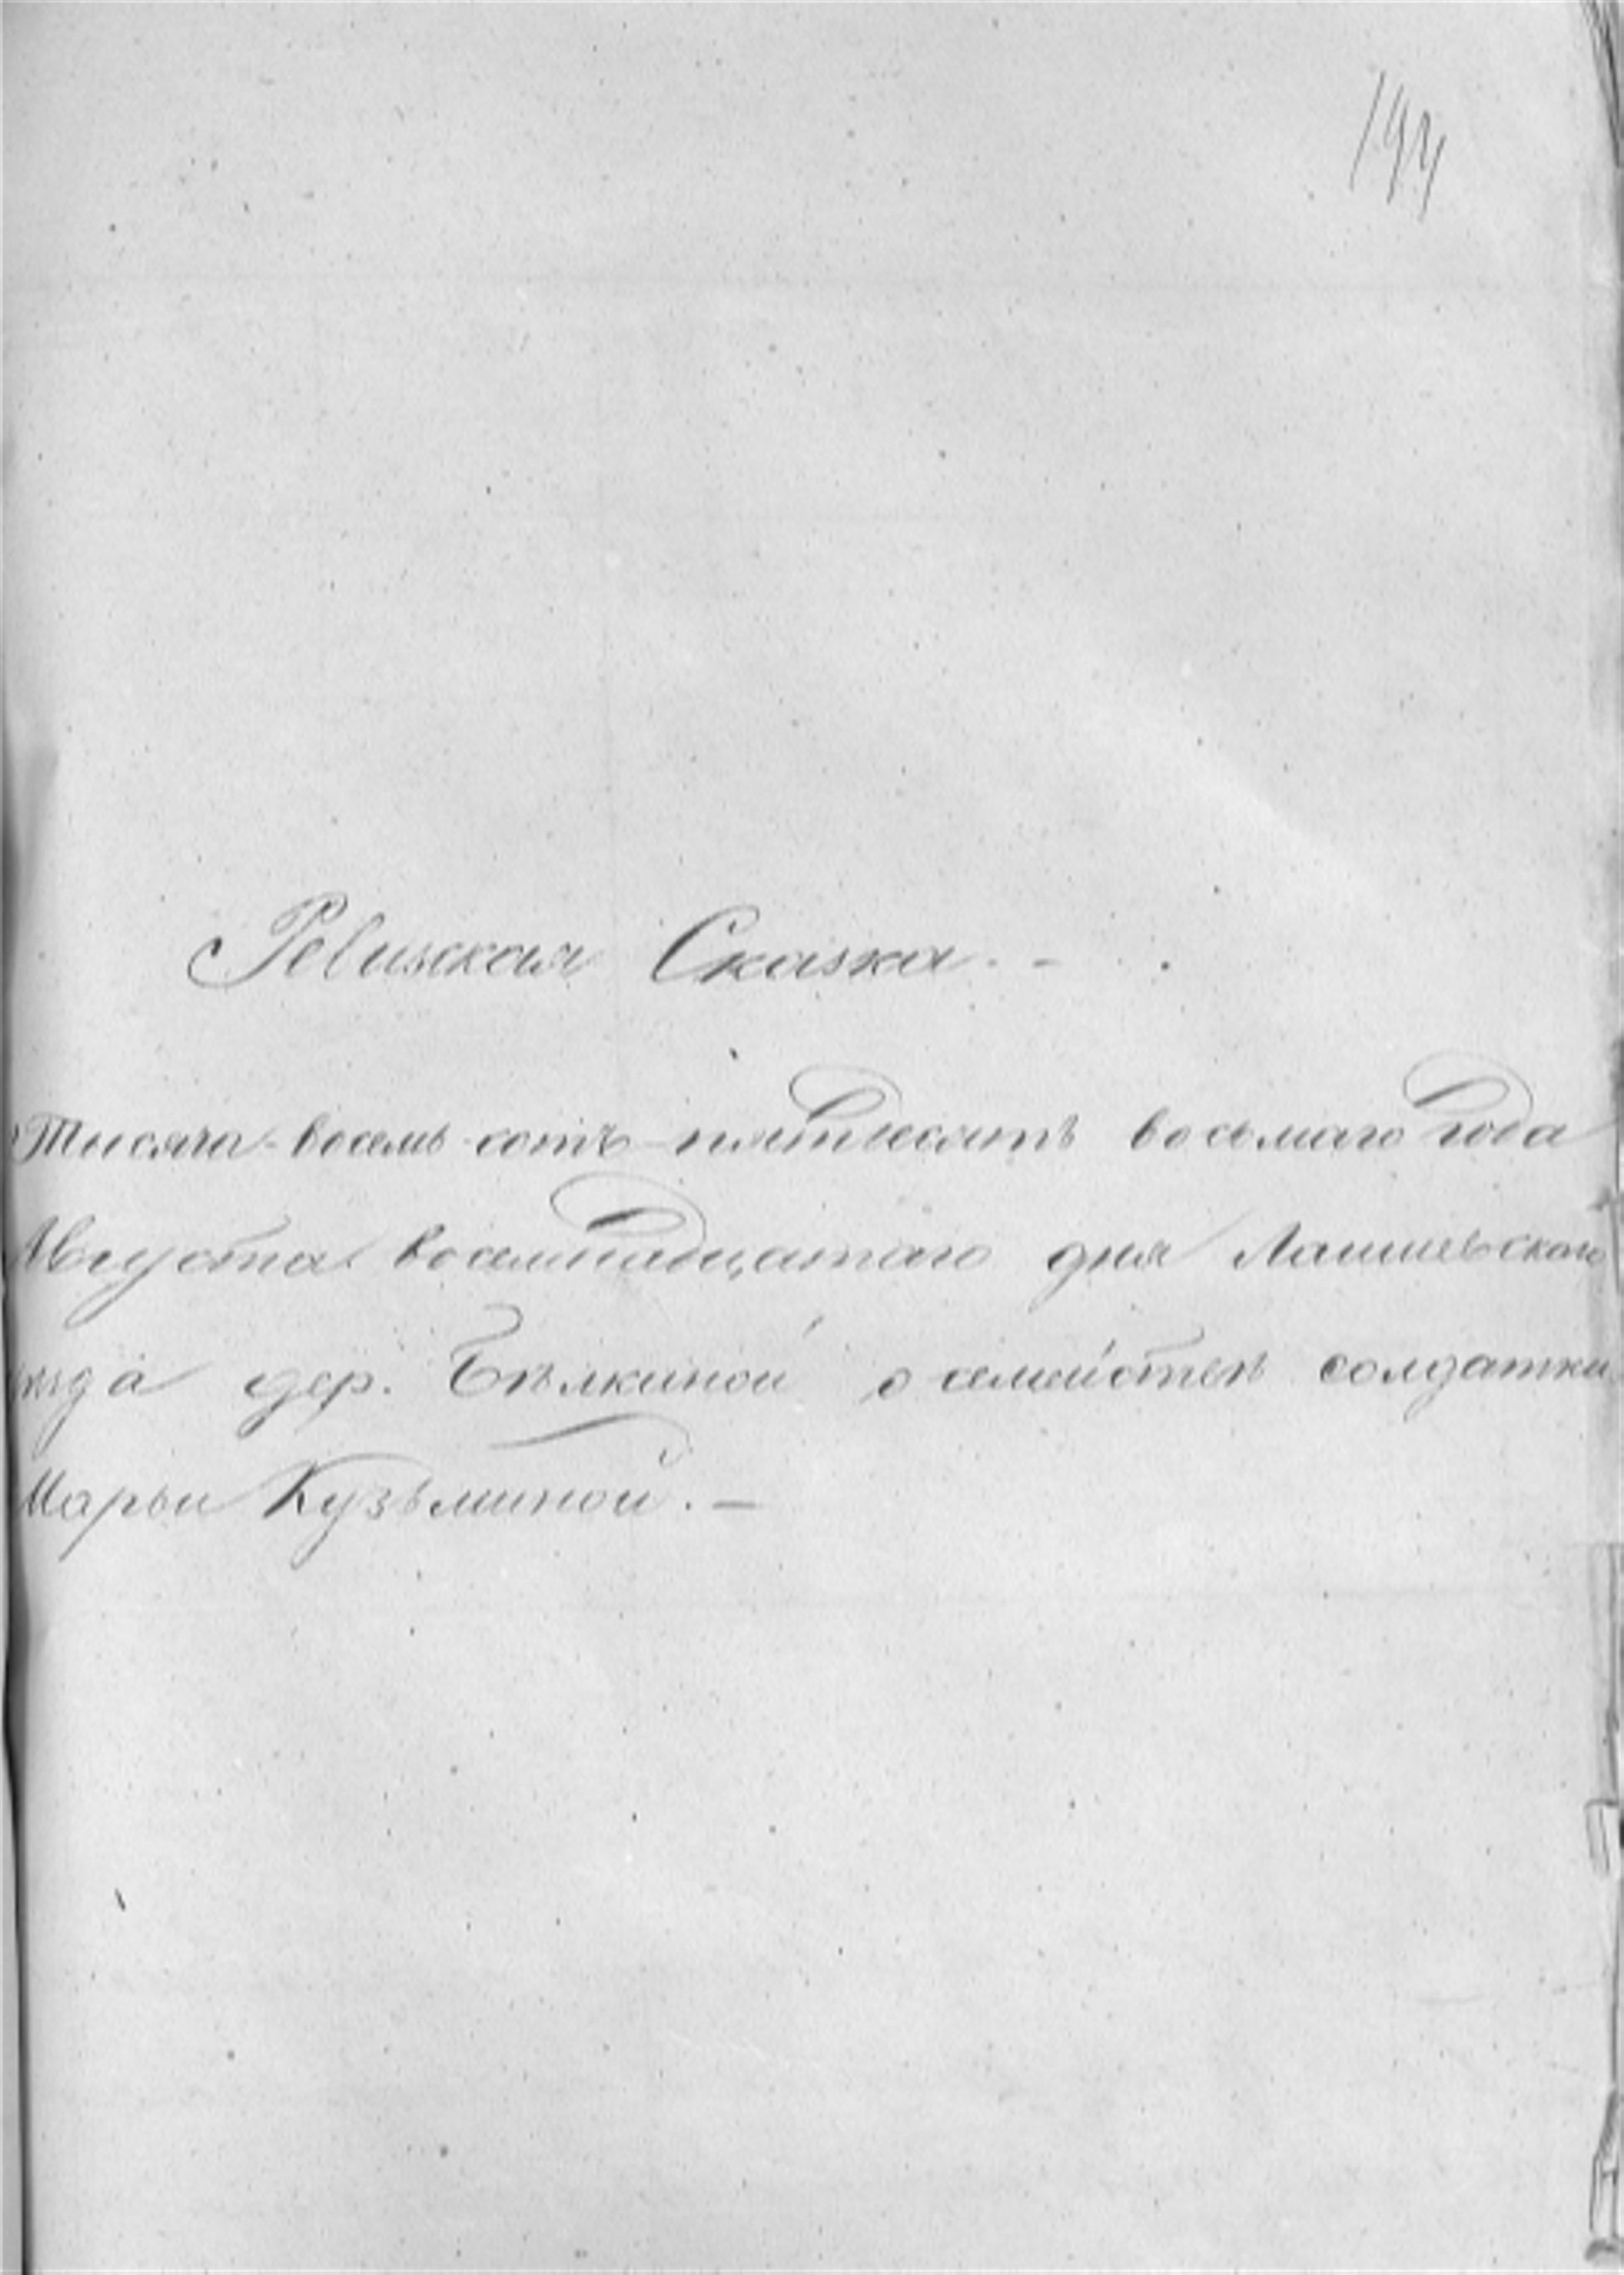 194
Ревизская Сказка. -
Тысяча восемь сотъ пятьдесятъ восьмаго года
Августа восемнадцатаго дня Лаишевского
уѣзда дер. Бѣлкиной о семействѣ солдатки
Марьи Кузьминой. —